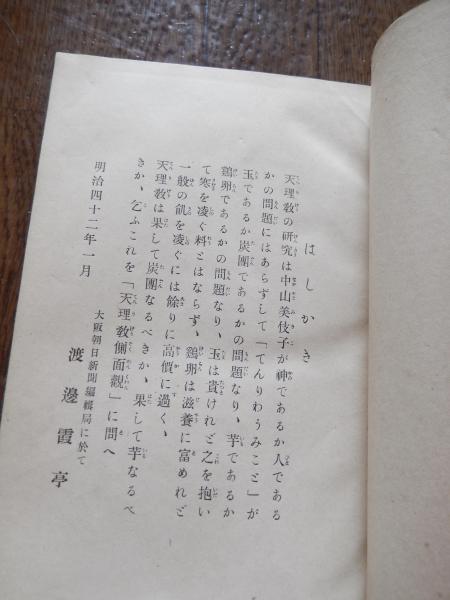 はしがき
天理敎の研究は中山美伎子が神であるか人である
かの問題にはあらずして「てんりわうみこと」が
玉であるか炭團であるかの問題なり、芋であるか
鷄卵であるかの問題なり、玉は貴けれど之を抱い
て寒を凌ぐ料とはならず、鷄卵は滋養に富めれど
一般の飢を凌ぐには餘りに高價に過ぐ、
天理敎は果して炭團なるべきか、果して芋なるべ
きか、乞ふこれを「天理敎側面觀」に問へ
明治四十二年一月
大阪朝日新聞編輯局に於て
渡邊霞亭